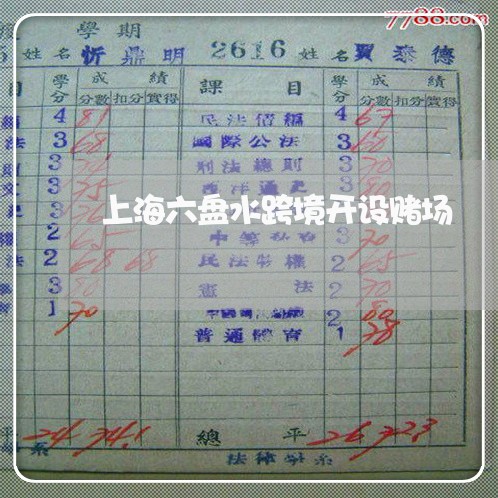 7788.com
學期
姓名 忻鼎明 2616 姓名 賈泰德
目 學分 成績 課目 學分 成績
分數 扣分 實得 分數 扣分 實得
4 81 民法債編 4 67
法 3 68 國際公法 3 60
3 刑法總則 3 70
3 75 西洋通史 3 80
上海六盘水跨境开设赌场
2 65 3 70
法 2 68 68 民法物權 2 65
3 80 憲法 2 70
1 70 2 80
普通體育 1 78
平 24 74.1 總平 26 72.3
系 法律學系